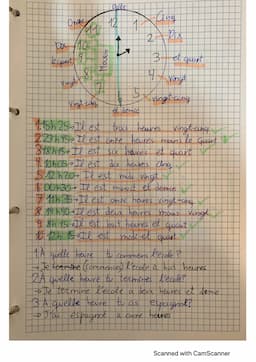 Pile
Cinq
Dix
et quart
Vingt
vingt-cinq
et demie
vingt-cinq
Vingt
le quart
Dix
12
1
2
3
4
5
7
8
9
10
11
1 15h25→Il est trois heures vingt-cinq
→Il est onze heures moins le quart
3 18h15→Il est six heures et quart
4 10h05→Il est dix heures cinq
5 12h20→Il est midi vingt
6 00h30→Il est minuit et demie
7 11h35→Il est onze heures vingt-cinq
8 →Il est deux heures moins vingt
9 8h15→Il est huit heures et quart
10 12h15→Il est midi et quart
1 A quelle heure tu commences l'école?
→Je termine (commence) l'école à huit heures
2 A quelle heure tu termines l'école?
→Je termine l'école à deux heures et demie
3 A quelle heure tu as espagnol?
→J'ai espagnol à onze heures
Scanned with CamScanner